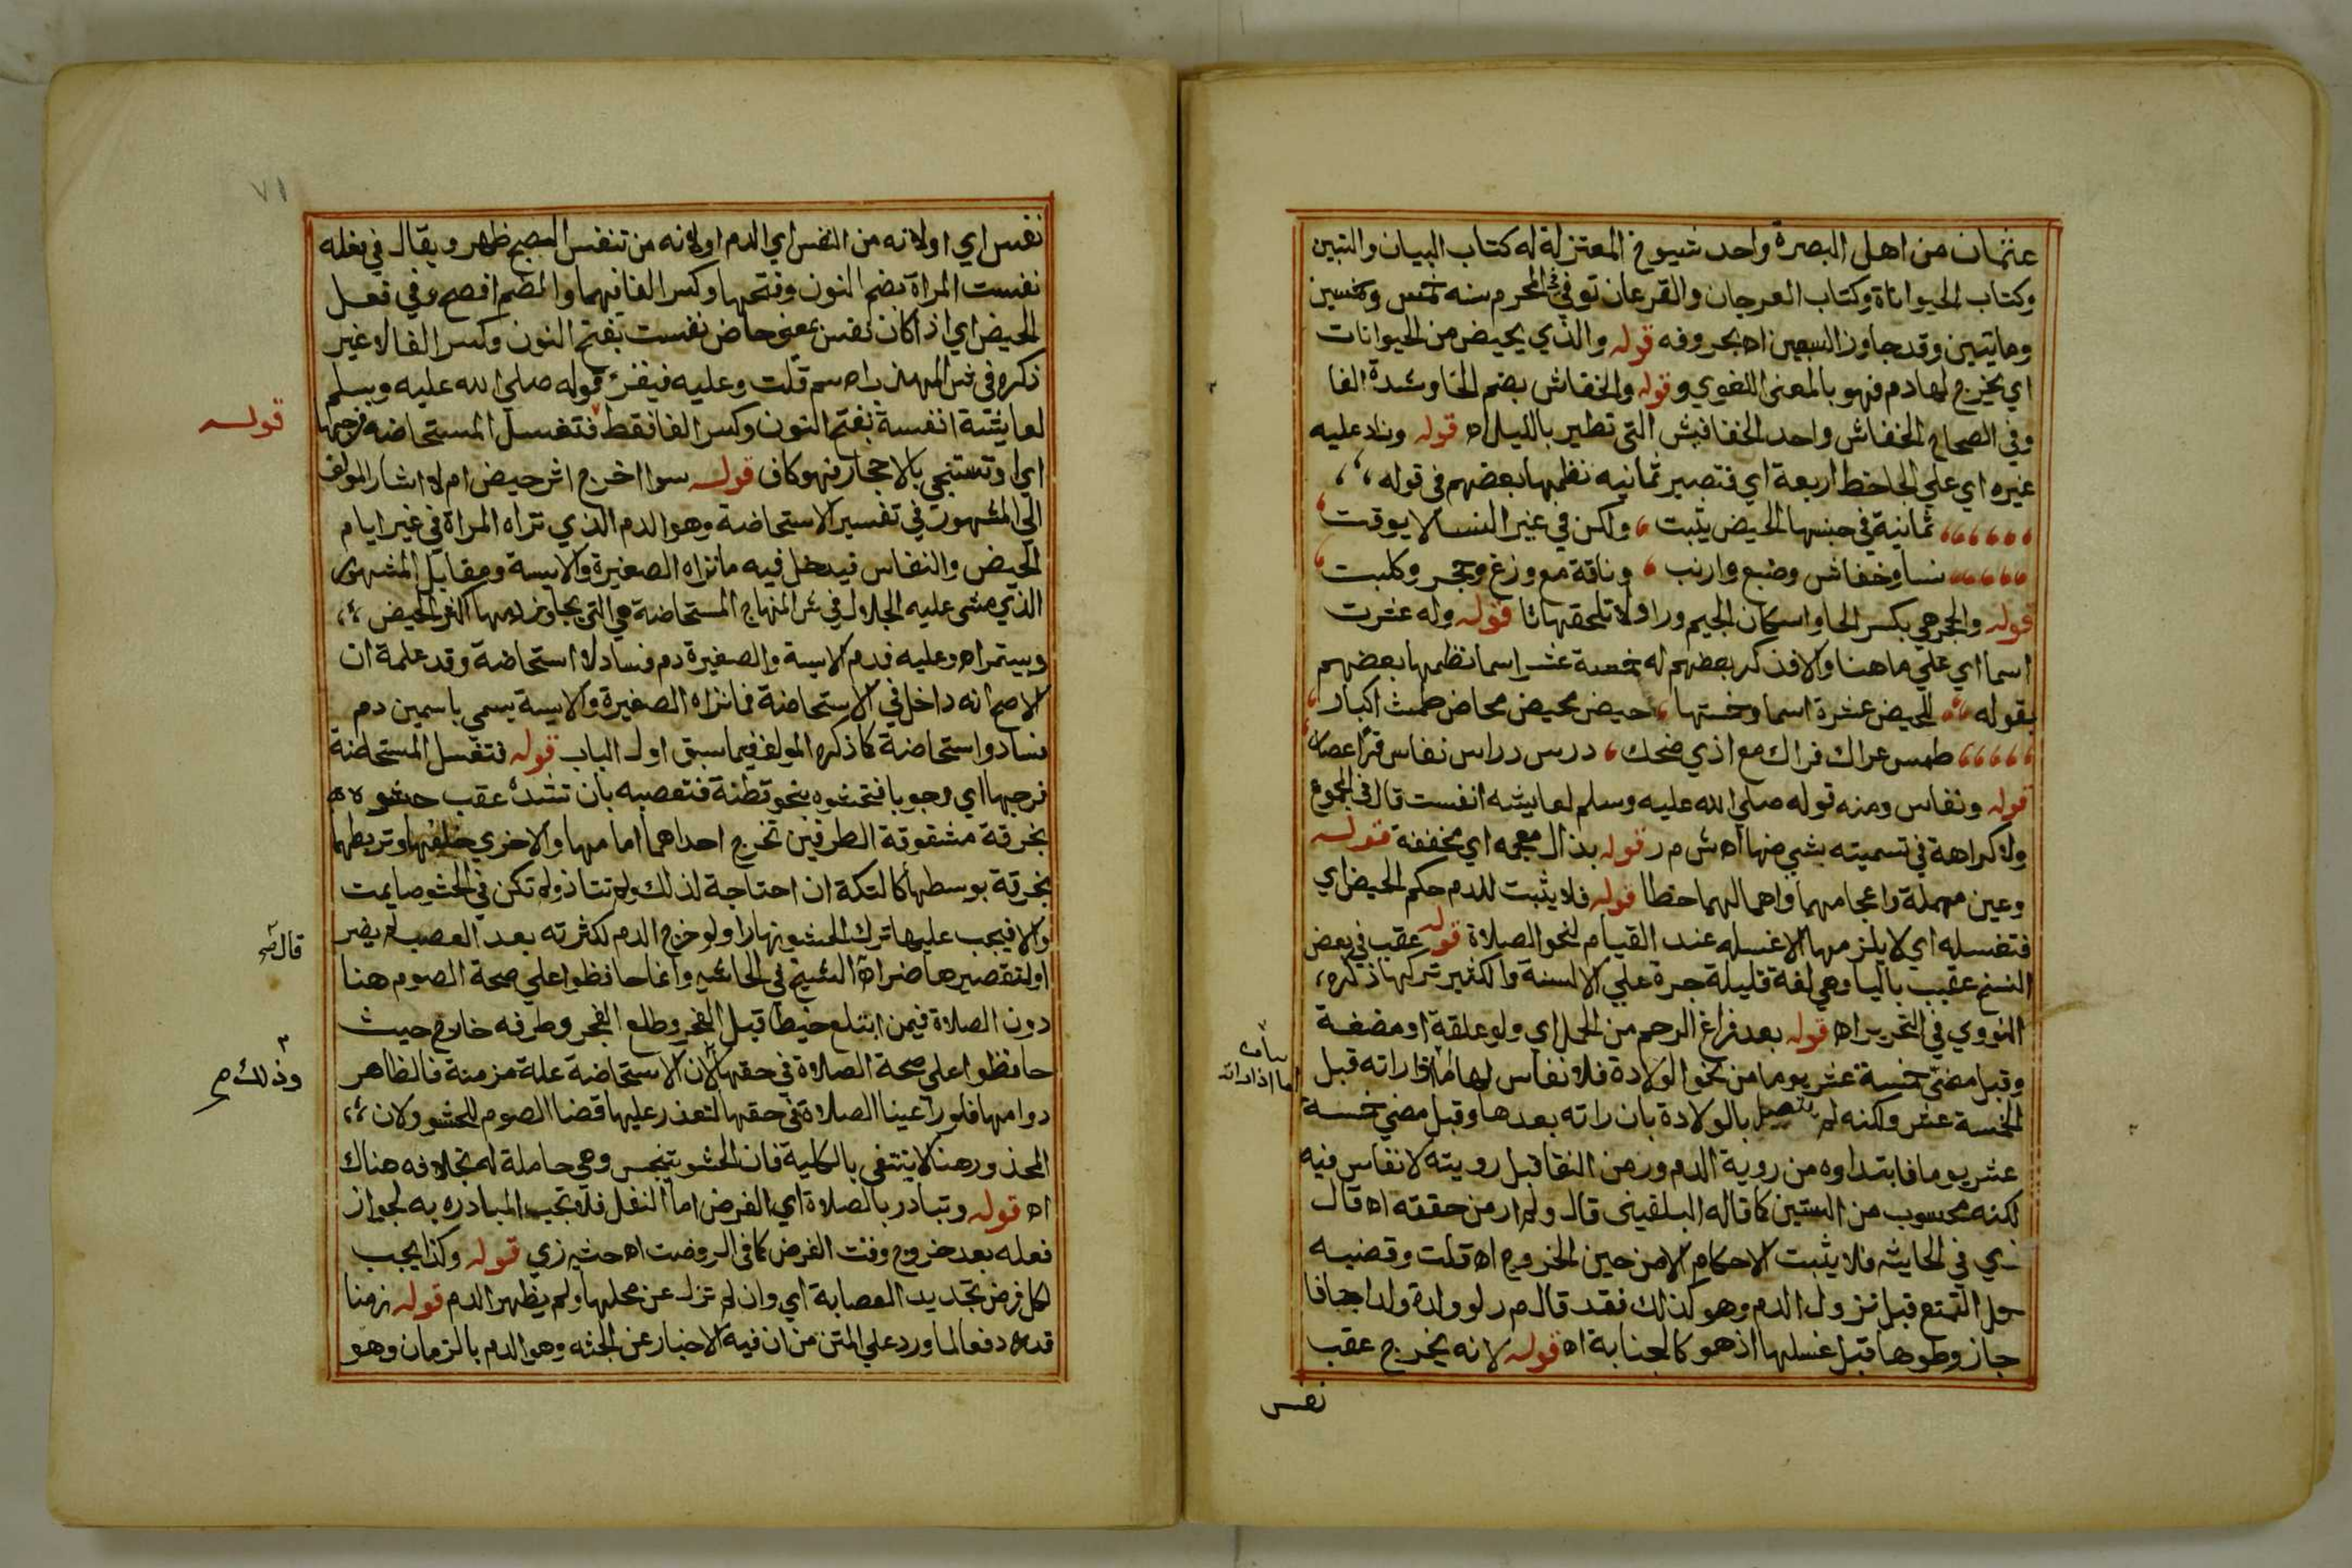 عثمان من اهل البصرة واحد شيوخ المعتزلة له كتاب البيان والتبين
وكتاب الحيوانات وكتاب العرجان والقرعان توفي في المحرم سنه خمس وخمسين
ومايتين وقد جاوز السبعين اه بحروفه قوله والذي يحيض من الحيوانات
اي يخرج لها دم فهو بالمعنى اللغوي وقوله والخفاش بضم الخا وشدة الفا
وفي الصحاح الخفاش واحد الخفافيش التي تطير بالليل اه قوله وزاد عليه
غيره اي علي الجاحظ اربعة اي فتصير ثمانيه نظمها بعضهم في قوله
ثمانية في جنسها الحيض يثبت ولكن في غير النسا لا يوقت
نسا وخفاش وضبع وارنب وناقة مع وزغ وحجر وكلبت
قوله والحجر هي بكسر الحا واسكان الجيم ورا ولا تلحقها تا قوله وله عشرت
اسما اي علي ما هنا والا فذكر بعضهم له خمسة عشر اسما نظمها بعضهم
بقوله للحيض عشرة اسما وخمستها حيض محيض محاض طمث اكبار
طمس عراك فراك مع اذي ضحك درس دراس نفاس قرا اعصار
قوله ونفاس ومنه قوله صلي الله عليه وسلم لعايشه انفست قال في المجموع
ولا كراهة في تسميته بشي منها اه ش م ر قوله بذال معجمه اي مخففة قوله
وعين مهملة واعجامهما واهمالهما خطا قوله فلا يثبت للدم حكم الحيض اي
فتغسله اي لا يلزمها الا غسله عند القيام لنحو الصلاة قوله عقب في بعض
النسخ عقيب باليا وهي لغة قليلة جرة علي الالسنة والكثير تركها ذكره
النووي في التحرير اه قوله بعد فراغ الرحم من الحمل اي ولو علقة او مضغة
وقبل مضي خمسة عشر يوما من نحو الولادة فلا نفاس لها اما اذا راته قبل
الخمسة عشر ولكنه لم يتصل بالولادة بان راته بعدها وقبل مضي خمسة
عشر يوما فابتداوه من روية الدم وزمن النقا قبل رويته لا نفاس فيه
لكنه محسوب من الستين كما قاله البلقيني قال ولم ار من حققه اه قال
زي في الحايثه فلا يثبت الاحكام الا من حين الخروج اه قلت وقضيه
حل التمتع قبل نزول الدم وهو كذلك فقد قال م ر لو ولدة ولدا جافا
جاز وطوها قبل غسلها اذ هو كالجنابة اه قوله لانه يخرج عقب
نفس
٧١
نفس اي او لانه من النفس اي الدم او لانه من تنفس الصبح ظهر ويقال في فعله
نفست المراة بضم النون وفتحها وكسر الفا فيهما والضم افصح وفي فعل
الحيض اي اذ اكان نفس بمعنى حاض نفست بفتح النون وكسر الفا لا غير
ذكره في ش المهذب اه سم قلت وعليه فيقر قوله صلي الله عليه وسلم
لعايشة انفسة بفتح النون وكسر الفا فقط فتغسل المستحاضه فرجها
قوله
اي او تستنجي بالاحجار فهو كاف قوله سوا اخرج اثر حيض ام لا اشار المولف
الي المشهور في تفسير الاستحاضة وهو الدم الذي تراه المراة في غير ايام
الحيض والنفاس فيدخل فيه ما تراه الصغيرة والايسة ومقابل المشهور
الذي مشى عليه الجلال في ش المنهاج المستحاضة هي التي يجاوز دمها اكثر الحيض
ويستمر اه وعليه فدم الايسة والصغيرة دم فساد لا استحاضة وقد علمة ان
الاصح انه داخل في الاستحاضة فما تراه الصغيرة والايسة يسمى باسمين دم
فساد واستحاضة كما ذكره المولف فيما سبق اول الباب قوله فتغسل المستحاضة
فرجها اي وجوبا فتحشوه بنحو قطنة فتعصبه بان تشده عقب حشوه
بخرقة مشقوقة الطرفين تخرج احداهما امامها والاخري خلفها وتربطهما
بخرقة بوسطها كالتكة ان احتاجة لذلك ولم تتاذ ولم تكن في الحشو صايمت
والا فيجب عليها ترك الحشو نهارا ولو خرج الدم لكثرته بعد العصب لم يضر
او لتقصيرها ضر اه الشيخ في الحاشيه وانما حافظوا علي صحة الصوم هنا
قال
دون الصلاة فيمن ابتلع خيطا قبل الفجر وطلع الفجر وطرفه خارج حيث
حافظوا علي صحة الصلاة في حقها لان الاستحاضة علة مزمنة فالظاهر
وذلك صح
دوامها فلو راعينا الصلاة في حقها لتعذر عليها قضا الصوم للحشو ولان
المحذور هنا لا ينتفي بالكلية فان الحشو يتنجس وهي حاملة له بخلافه هناك
اه قوله وتبادر بالصلاة اي الفرض اما النفل فلا تجب المبادره به لجواز
فعله بعد خروج وقت الفرض كما في الروضت اه حشيه زي قوله وكذا يجب
لكل فرض تجديد العصابة اي وان لم تزل عن محلها ولم يظهر الدم قوله زمنا
قدره دفعا لما ورد علي المتن من ان فيه الاخبار عن الجثه وهو الدم بالزمان وهو